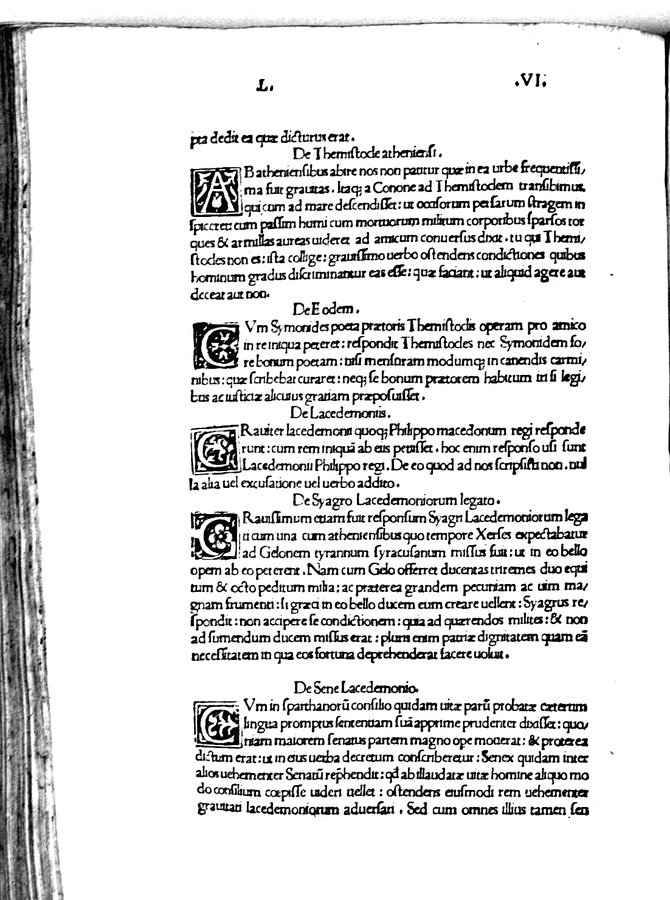 .L. .VI.
pta dedit ea quæ dicturus erat.
De Themistocle atheniensi.
AB atheniensibus abire nos non patitur quæ in ea urbe frequentissi,
ma fuit grauitas. Itaq; a Conone ad Themistoclem transibimus,
qui cum ad mare descendisset: ut occasorum persarum stragem in
spiceret: cum passim humi cum mortuorum militum corporibus sparsos tor
ques & armillas aureas uideret ad amicum conuersus dixit. tu qui Themi,
stocles non es: ista collige: grauissimo uerbo ostendens condictiones quibus
hominum gradus discriminantur eas esse: quæ faciant: ut aliquid agere aut
deceat aut non.
De Eodem.
CVm Symonides poeta prætoris Themistoclis operam pro amico
in re iniqua peteret: respondit Themistocles nec Symonidem fo,
re bonum poetam: nisi mensuram modumq; in canendis carmi,
nibus: quæ scribebat curaret: neq; se bonum prætorem habitum iri si legi,
bus ac iusticiæ alicuius gratiam præposuisset.
De Lacedemoniis.
GRauiter lacedemonii quoq; Philippo macedonum regi responde
runt: cum rem iniquã ab eis petiisset. hoc enim responso usi sunt
Lacedemonii Philippo regi. De eo quod ad nos scripsisti non. nul
la alia uel excusatione uel uerbo addito.
De Syagro Lacedemoniorum legato.
GRauissimum etiam fuit responsum Syagri Lacedemoniorum lega
ti cum una cum atheniensibus quo tempore Xerses expectabatur
ad Gelonem tyrannum syracusanum missus fuit: ut in eo bello
opem ab eo peterent. Nam cum Gelo offerret ducentas triremes duo equi
tum & octo peditum milia; ac præterea grandem pecuniam ac uim ma,
gnam frumenti: si græci in eo bello ducem eum creare uellent: Syagrus re,
spondit: non accipere se condictionem: quia ad quærendos milites: & non
ad sumendum ducem missus erat: pluris enim patriæ dignitatem quam eã
necessitatem in qua eos fortuna deprehenderat facere uoluit.
De Sene Lacedemonio.
CVm in sparthanorũ consilio quidam uitæ parũ probatæ cæterum
lingua promptus sententiam suã apprime prudenter dixisset: quo,
niam maiorem senatus partem magno ope mouerat: & proterea
dictum erat: ut in eius uerba decretum conscriberetur: Senex quidam inter
alios uehementer Senatũ rep̄hendit: qđ ab illaudatæ uitæ homine aliquo mo
do consilium cœpisse uideri uellet: ostendens eiusmodi rem uehementer
grauitati lacedemoniorum aduersari. Sed cum omnes illius tamen sen